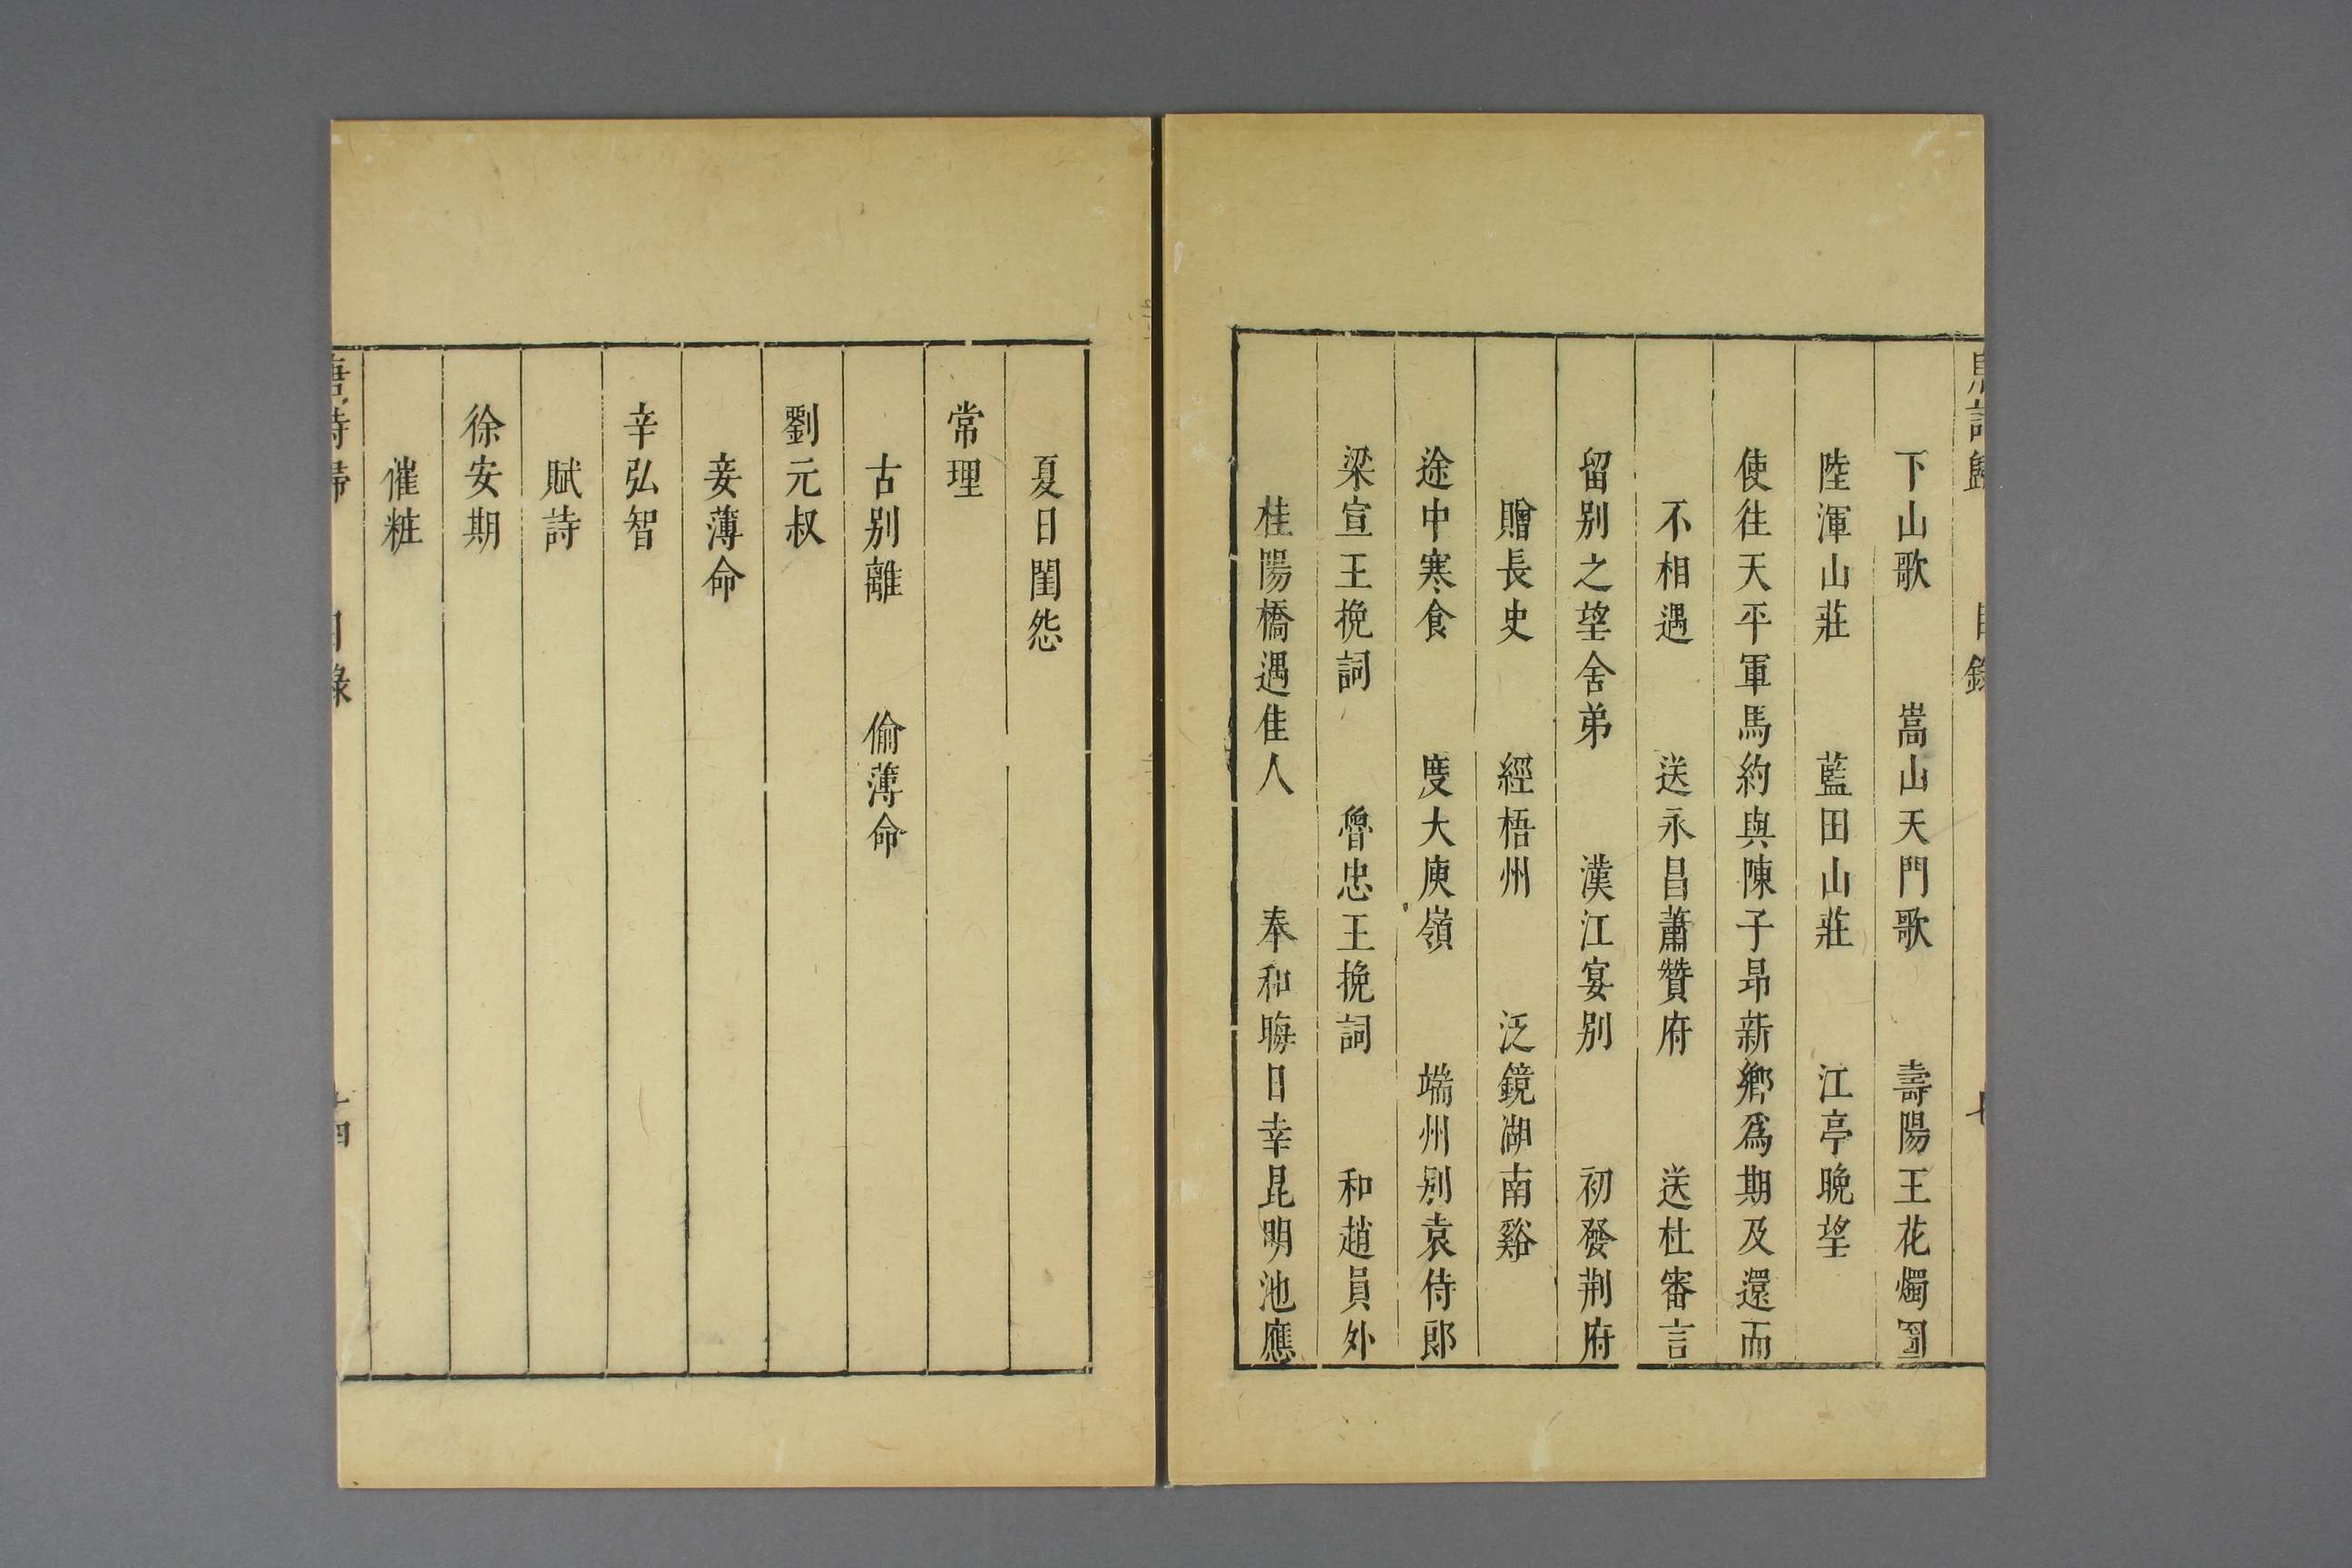 唐詩歸 目錄 七
下山歌 嵩山天門歌 壽陽王花燭圖
陸渾山莊 藍田山莊 江亭晚望
使往天平軍馬約與陳子昂新鄉爲期及還而
不相遇 送永昌蕭贊府 送杜審言
留别之望舍弟 漢江宴别 初發荆府
贈長史 經梧州 泛鏡湖南谿
途中寒食 度大庾嶺 端州别袁侍郎
梁宣王挽詞 魯忠王挽詞 和趙員外
桂陽橋遇佳人 奉和晦日幸昆明池應
夏日閨怨
常理
古别離 偷薄命
劉元叔
妾薄命
辛弘智
賦詩
徐安期
催粧
唐詩歸 目錄 十四